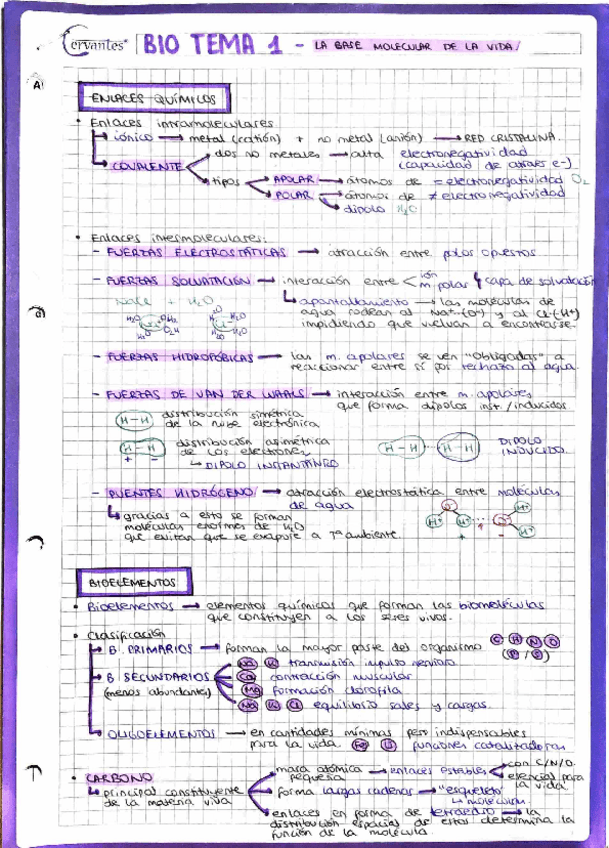 Cervantes BIO TEMA 1 - LA BASE MOLECULAR DE LA VIDA
A
ENLACES QUÍMICOS
• Enlaces intramoleculares
iónico → metal (catión) + no metal (anión) → RED CRISTALINA.
COVALENTE dos no metales → alta electronegatividad
(capacidad de atraer e-)
tipos APOLAR → átomos de = electronegatividad O2
POLAR → átomos de ≠ electronegatividad
dipolo H2O
• Enlaces intermoleculares:
- FUERZAS ELECTROSTÁTICAS → atracción entre polos opuestos
- FUERZAS SOLVATACIÓN → interacción entre < ión
m polar capa de solvatación
NaCl + H2O apantallamiento → las moléculas de
agua rodean al Na+ (O-) y al Cl- (H+)
impidiendo que vuelvan a encontrarse.
H2O OH2 H2O O2H
- FUERZAS HIDROFÓBICAS → las m. apolares se ven "obligadas" a
reaccionar entre sí por rechazo al agua.
- FUERZAS DE VAN DER WAALS → interacción entre m. apolares,
que forma dipolos inst./inducidos
H-H distribución simétrica
de la nube electrónica
H-H distribución asimétrica
de los electrones
+ - ↳ DIPOLO INSTANTÁNEO
H-H H-H DIPOLO
INDUCIDO.
- PUENTES HIDRÓGENO → atracción electrostática entre moléculas
de agua
↳ gracias a esto se forman
moléculas enormes de H2O
que evitan que se evapore a Tª ambiente.
H+ H+ O- H+ H+
+ -
BIOELEMENTOS
• Bioelementos → elementos químicos que forman las biomoléculas
que constituyen a los seres vivos.
• Clasificación
B. PRIMARIOS → forman la mayor parte del organismo C H N O
(P/S)
B SECUNDARIOS Na K transmisión impulso nervioso
(menos abundante) Ca contracción muscular
Mg formación clorofila
Na K Cl equilibrio sales y cargas.
OLIGOELEMENTOS → en cantidades mínimas pero indispensables
para la vida. Fe Li funciones catalizadoras
• CARBONO
↳ principal constituyente
de la materia viva
masa atómica
pequeña → enlaces estables con C/N/O.
esencial para
la vida
forma largas cadenas → "esqueleto"
↳ molécula
enlaces en forma de tetraedro → la
distribución espacial de estos determina la
función de la molécula.